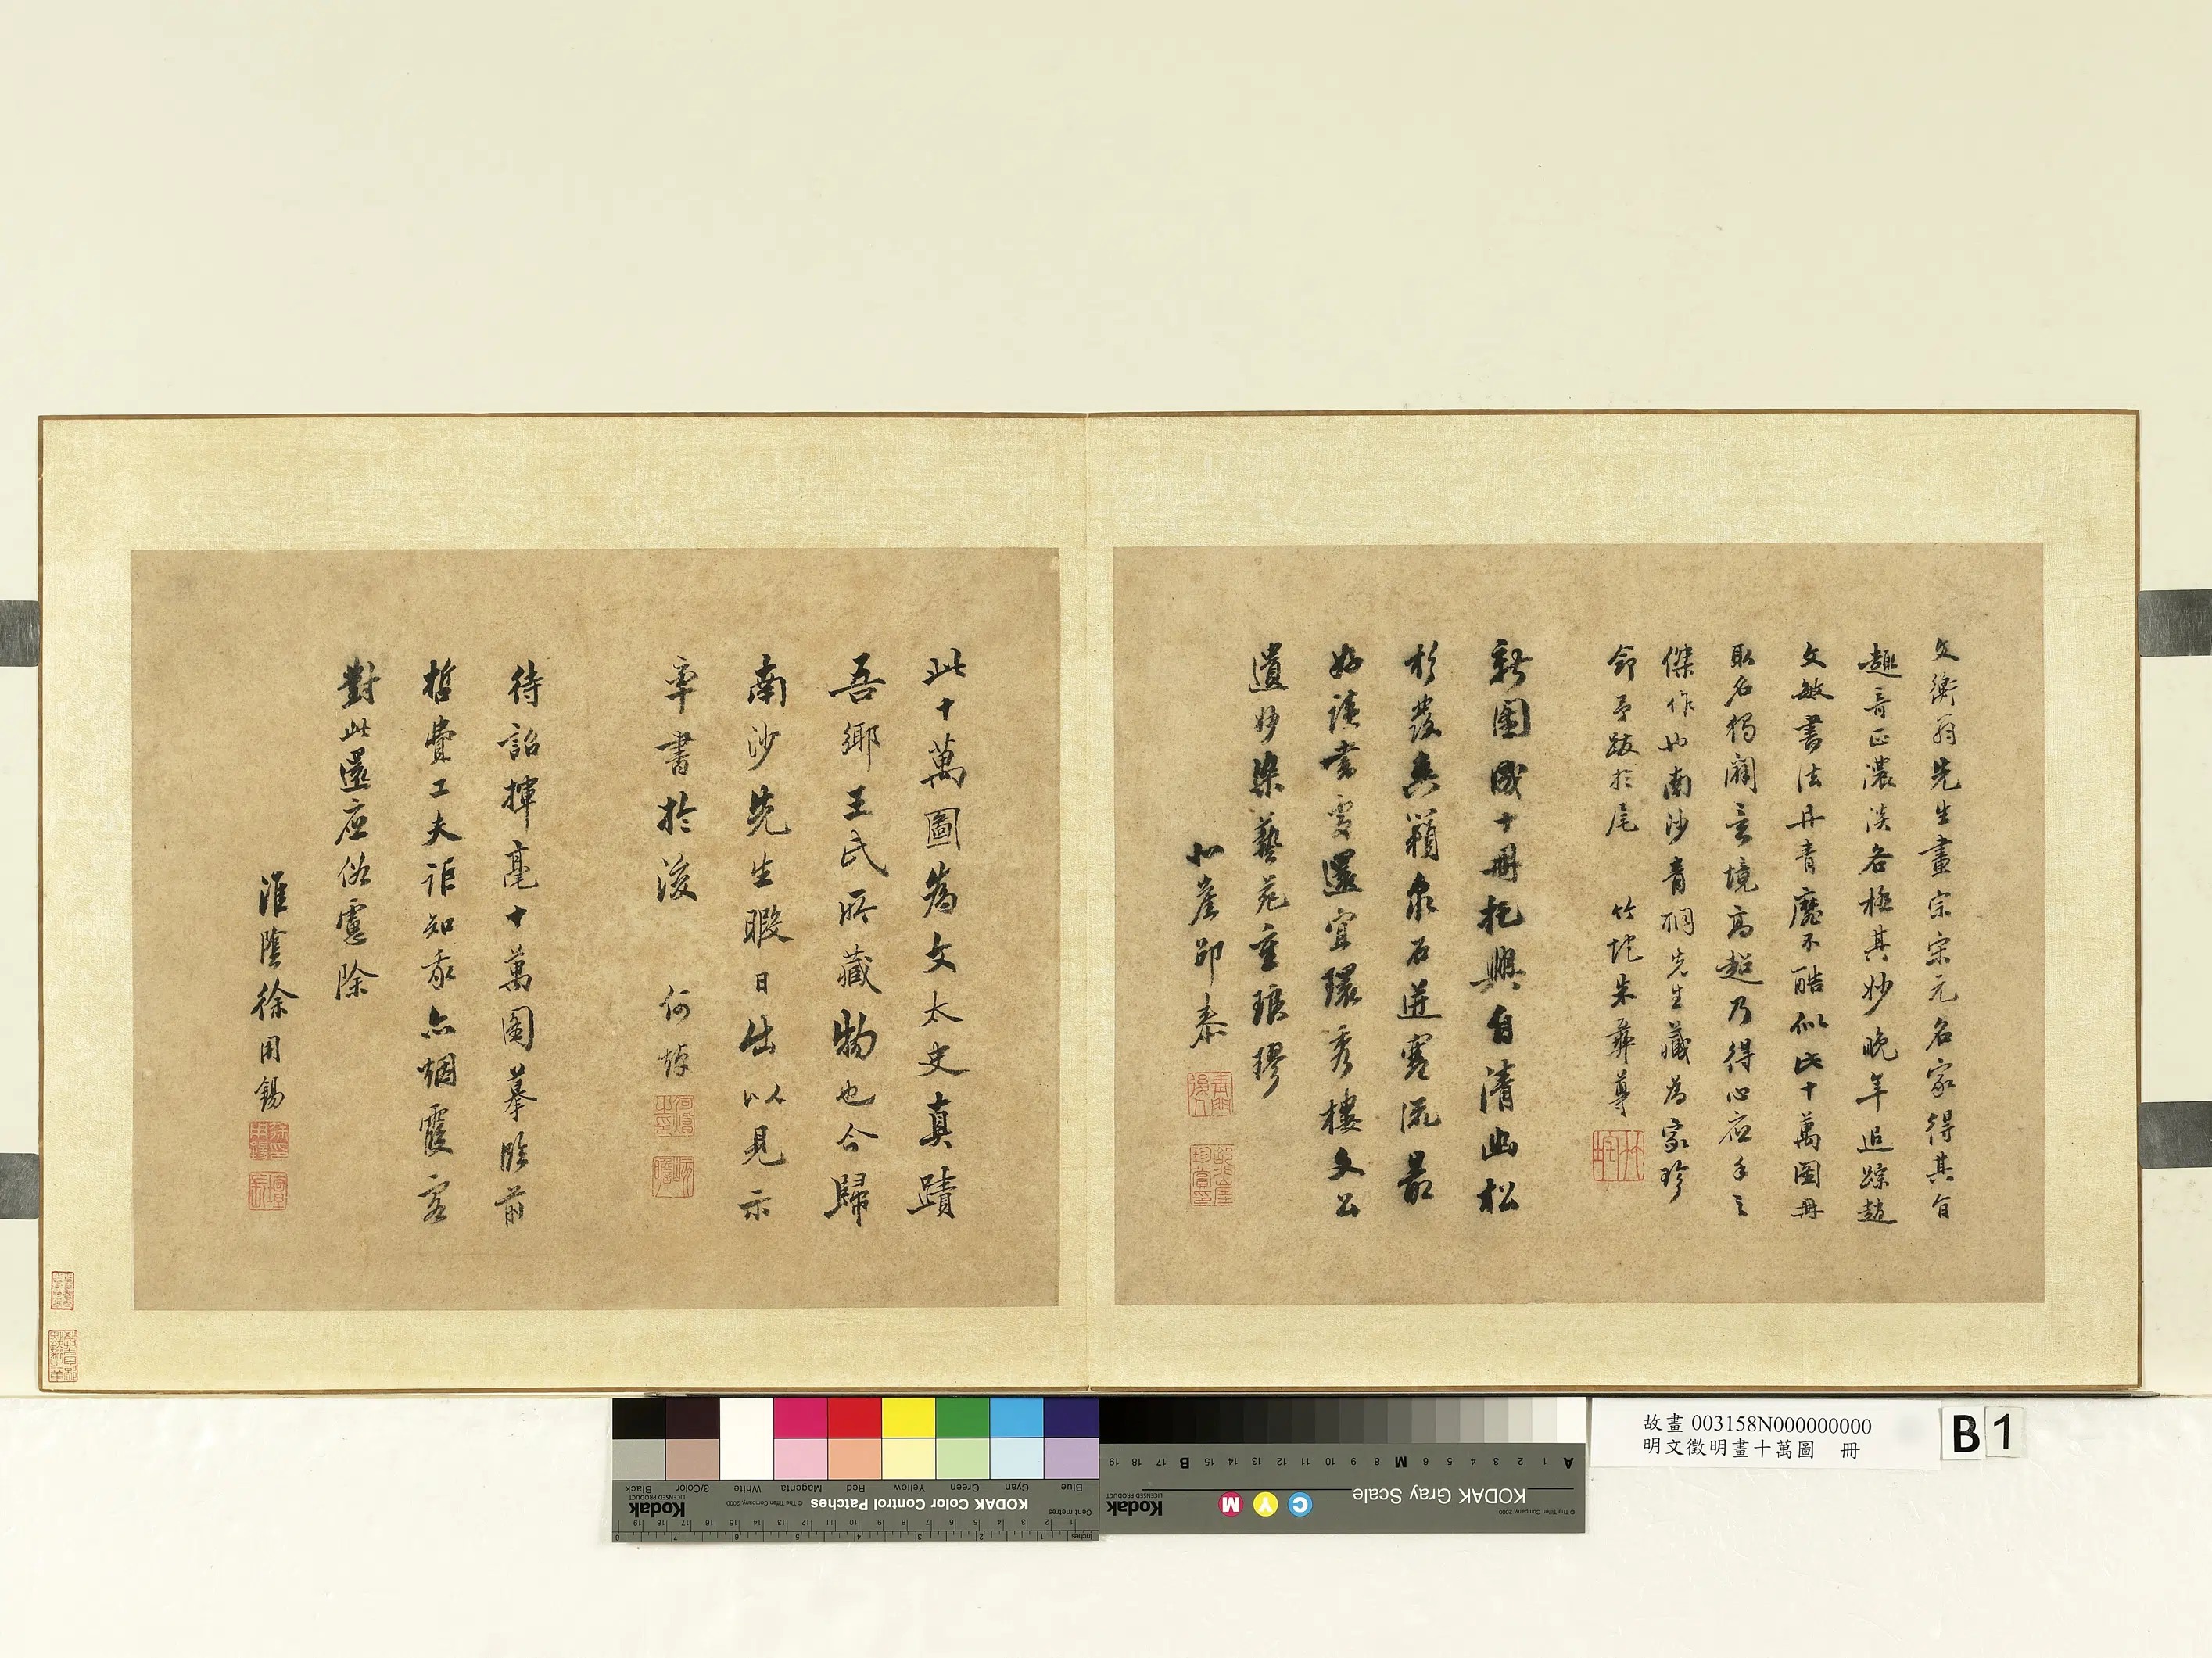 文衡翁先生畫宗宋元名家得其旨
趣奇正濃淡各極其妙晚年追踪趙
文敏書法丹青靡不酷似此十萬圖冊
取名獨闢意境高超乃得心应手之
傑作也南沙青桐先生藏為家珍
命予跋於尾 竹垞朱彝尊
新圖成十冊托興自清幽松
杉發爽籟泉石迸寒流最
好讀書處還宜環秀樓文公
遺妙染藝苑重琅璆
北崖邵泰
此十萬圖為文太史真蹟
吾鄉王氏所藏物也今歸
南沙先生暇日出以見示
率書於後 何焯
待詔揮毫十萬圖摹臨前
哲費工夫詎知我亦烟霞客
對此還应俗慮除
淮陰徐用錫
故畫 003158N000000000
明文徵明畫十萬圖 冊
B 1
KODAK Color Control Patches
Kodak
LICENSED PRODUCT
© The Tiffen Company, 2000
Blue Cyan Green Yellow Red Magenta White 3/Color Black
Centimetres
Inches
KODAK Gray Scale
Kodak
LICENSED PRODUCT
© The Tiffen Company, 2000
C Y M
A 1 2 3 4 5 6 M 8 9 10 11 12 13 14 15 B 17 18 19